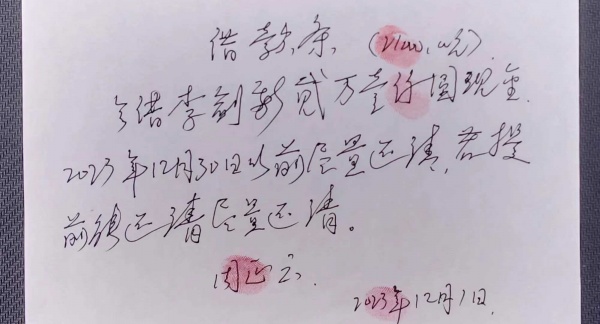 借款条 (21000.00元)
今借李剑新贰万壹仟圆现金
2023年12月30日以前尽量还清,若提
前能还清尽量还清。
周正云
2023年12月1日